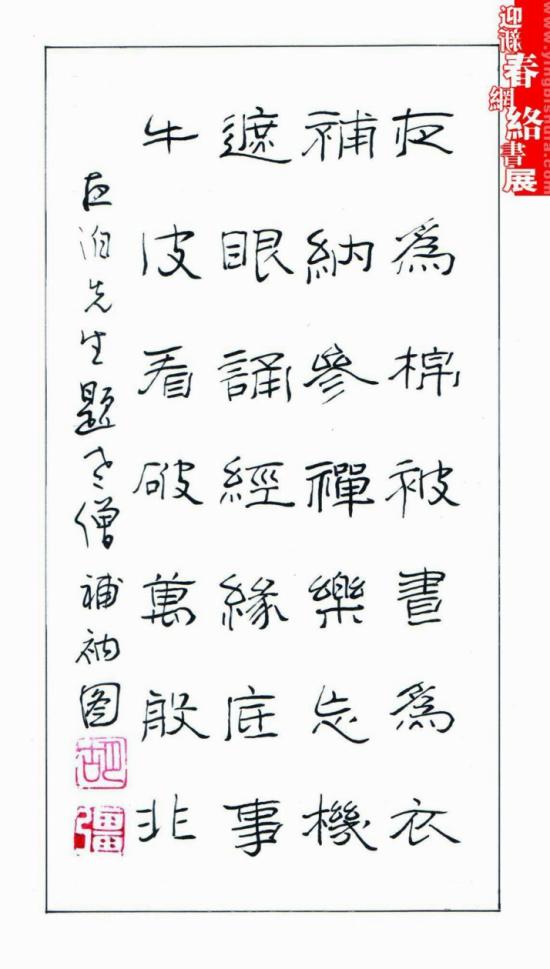 迎春網絡書展
www.yingbishufa.com
夜為棉被晝為衣
補納參禪樂忘機
遮眼誦經緣底事
牛皮看破萬般非
泊先生題老僧補衲图
胡
彊